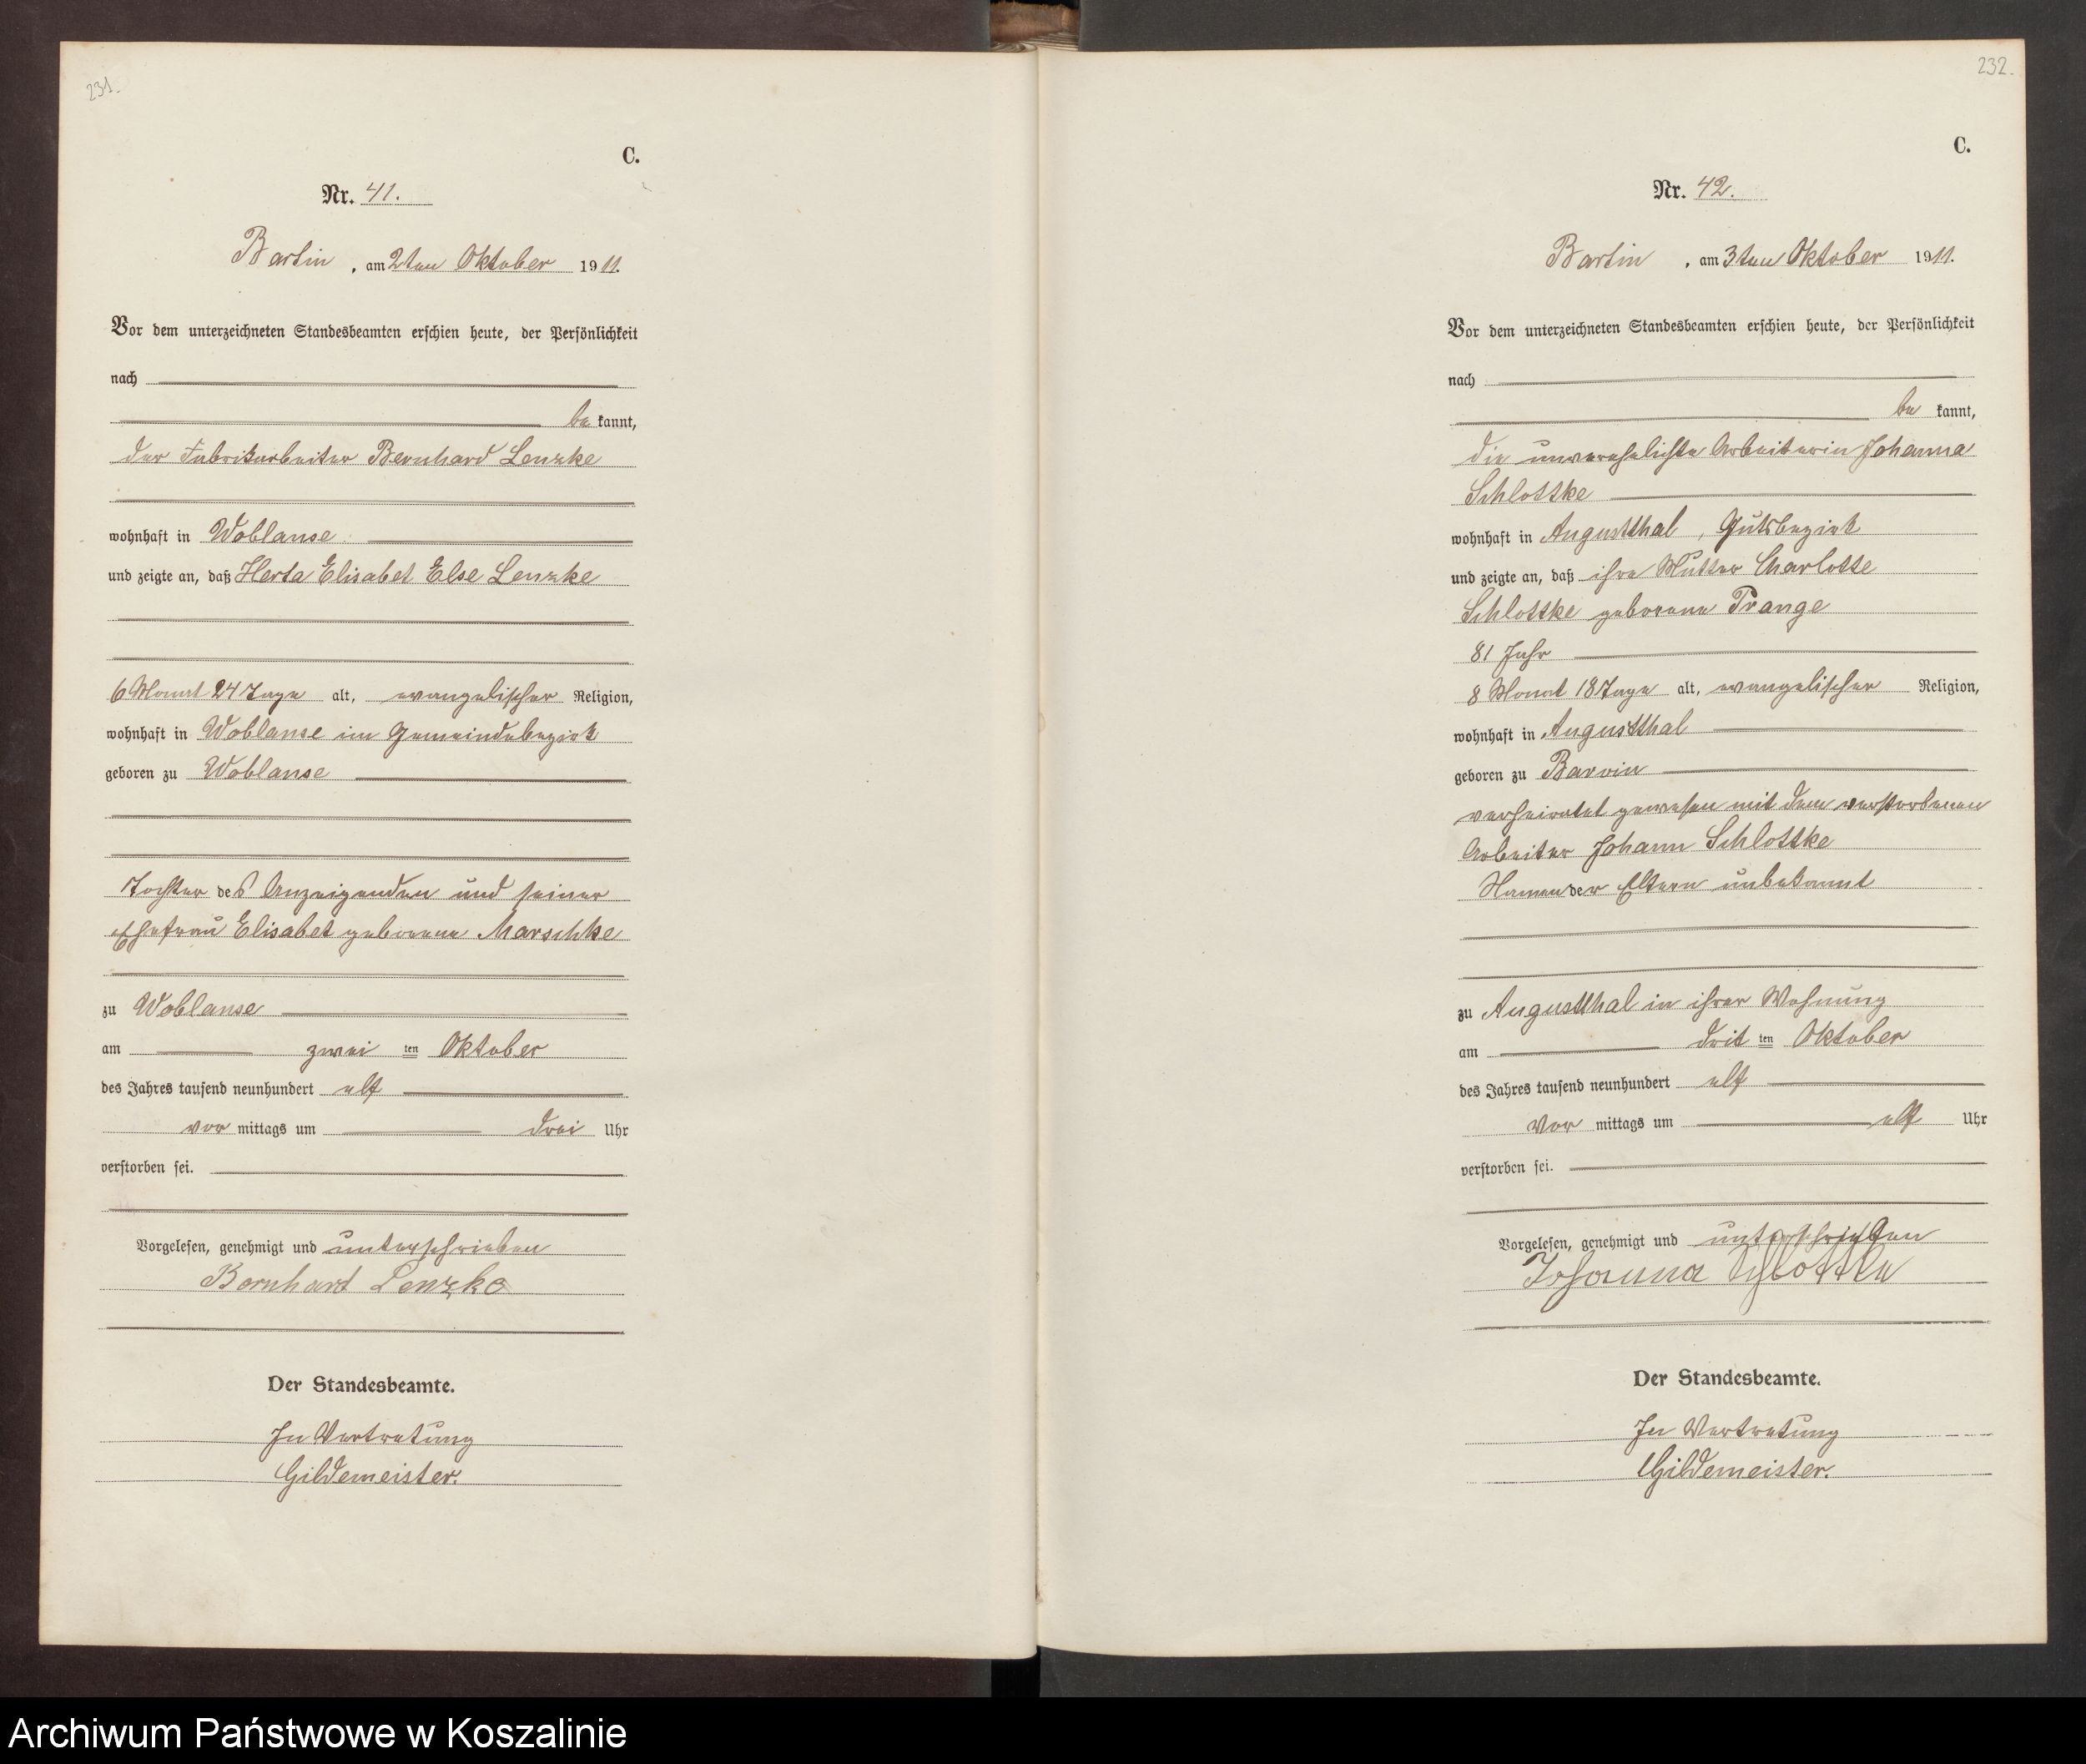 231.
C.
Nr. 41.
Bartin, am 2ten Oktober 1911.
Vor dem unterzeichneten Standesbeamten erschien heute, der Persönlichkeit
nach
be kannt,
der Fabrikarbeiter Bernhard Lenzke
wohnhaft in Woblanse
und zeigte an, daß Herta Elisabet Else Lenzke
6 Monat 24 Tage alt, evangelischer Religion,
wohnhaft in Woblanse im Gemeindebezirk
geboren zu Woblanse
Tochter des Anzeigenden und seiner
Ehefrau Elisabet geborene Marschke
zu Woblanse
am zwei ten Oktober
des Jahres tausend neunhundert elf
vor mittags um drei Uhr
verstorben sei.
Vorgelesen, genehmigt und unterschrieben
Bernhard Lenzke
Der Standesbeamte.
In Vertretung
Gildemeister.
232.
C.
Nr. 42.
Bartin, am 3ten Oktober 1911.
Vor dem unterzeichneten Standesbeamten erschien heute, der Persönlichkeit
nach
be kannt,
die unverehelichte Arbeiterin Johanna
Schlottke
wohnhaft in Augustthal, Gutsbezirk
und zeigte an, daß ihre Mutter Charlotte
Schlottke geborene Prange
81 Jahr
8 Monat 18 Tage alt, evangelischer Religion,
wohnhaft in Augustthal
geboren zu Barvin
verheiratet gewesen mit dem verstorbenen
Arbeiter Johann Schlottke
Namen der Eltern unbekannt
zu Augustthal in ihrer Wohnung
am drit ten Oktober
des Jahres tausend neunhundert elf
Vor mittags um elf Uhr
verstorben sei.
Vorgelesen, genehmigt und unterschrieben
Johanna Schlottke
Der Standesbeamte.
In Vertretung
Gildemeister.
Archiwum Państwowe w Koszalinie